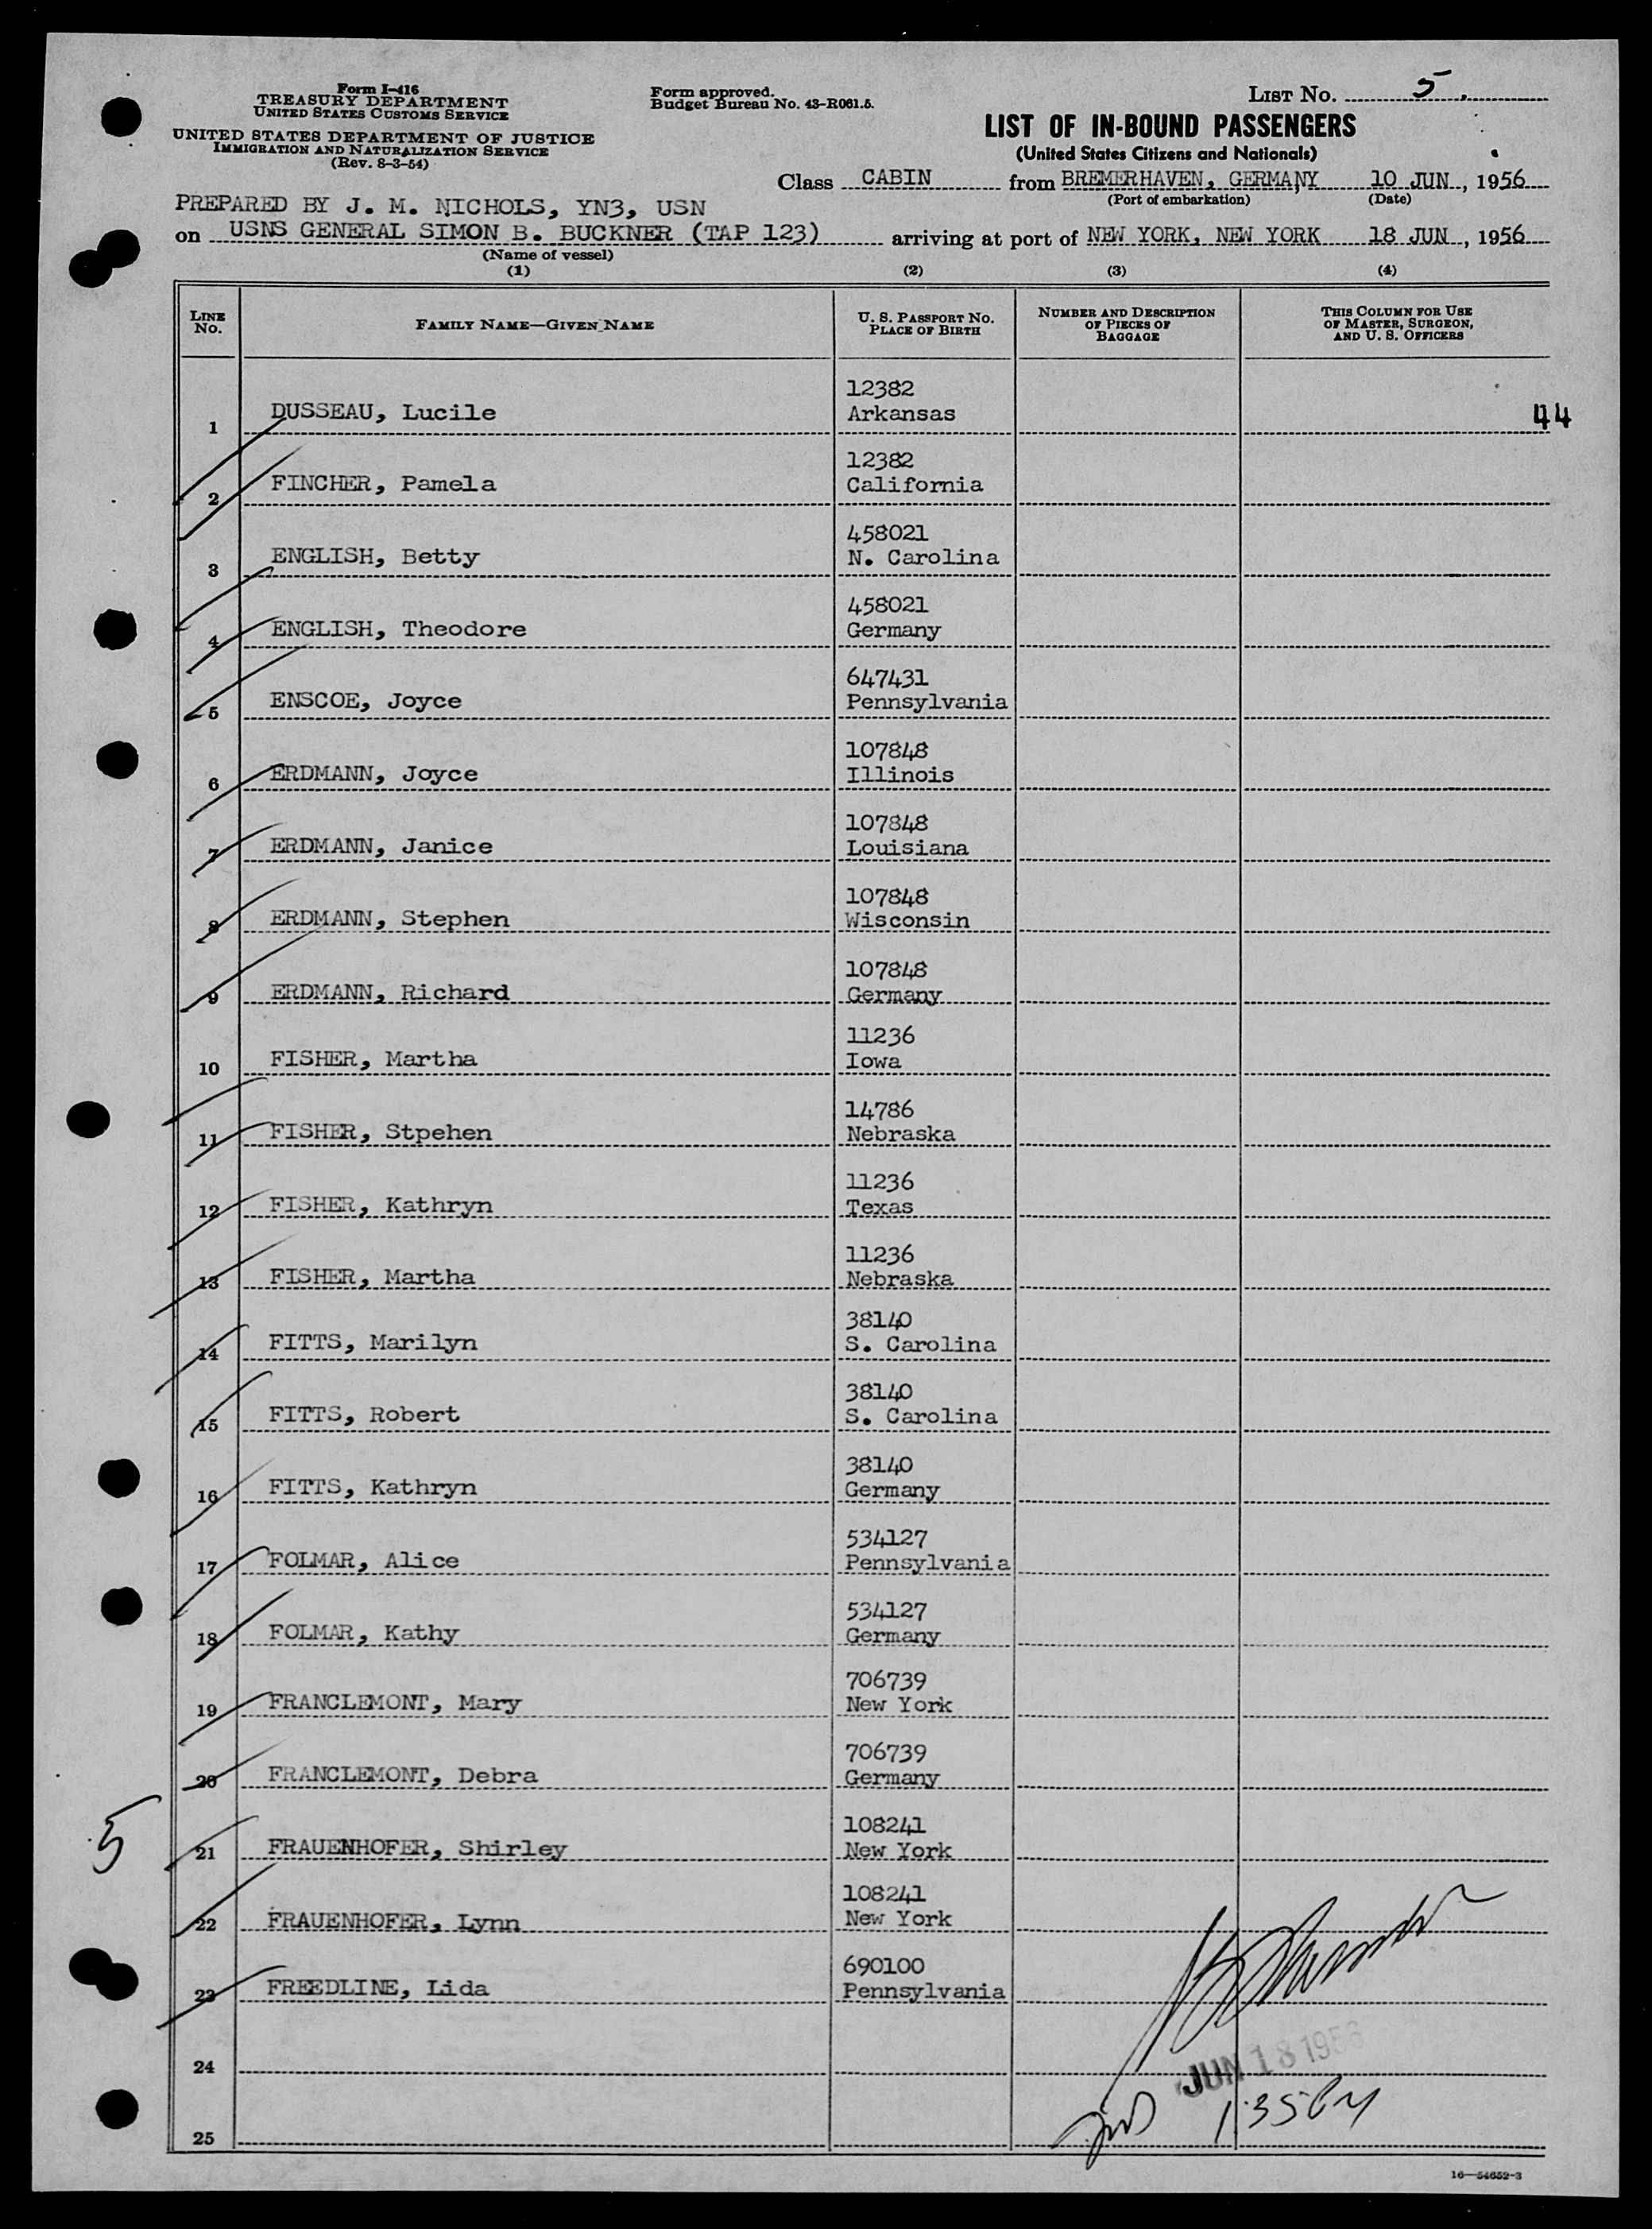 Form I-416
TREASURY DEPARTMENT
UNITED STATES CUSTOMS SERVICE
UNITED STATES DEPARTMENT OF JUSTICE
IMMIGRATION AND NATURALIZATION SERVICE
(Rev. 8-3-54)
Form approved.
Budget Bureau No. 43-R061.5.
LIST No. 5
LIST OF IN-BOUND PASSENGERS
(United States Citizens and Nationals)
Class CABIN from BREMERHAVEN, GERMANY 10 JUN, 1956
(Port of embarkation) (Date)
PREPARED BY J. M. NICHOLS, YN3, USN
on USNS GENERAL SIMON B. BUCKNER (TAP 123) arriving at port of NEW YORK, NEW YORK 18 JUN, 1956
(Name of vessel)
(1) (2) (3) (4)
LINE No. FAMILY NAME—GIVEN NAME U. S. PASSPORT NO. PLACE OF BIRTH NUMBER AND DESCRIPTION OF PIECES OF BAGGAGE THIS COLUMN FOR USE OF MASTER, SURGEON, AND U. S. OFFICERS
12382
1 DUSSEAU, Lucile Arkansas 44
12382
2 FINCHER, Pamela California
458021
3 ENGLISH, Betty N. Carolina
458021
4 ENGLISH, Theodore Germany
647431
5 ENSCOE, Joyce Pennsylvania
107848
6 ERDMANN, Joyce Illinois
107848
7 ERDMANN, Janice Louisiana
107848
8 ERDMANN, Stephen Wisconsin
107848
9 ERDMANN, Richard Germany
11236
10 FISHER, Martha Iowa
14786
11 FISHER, Stpehen Nebraska
11236
12 FISHER, Kathryn Texas
11236
13 FISHER, Martha Nebraska
38140
14 FITTS, Marilyn S. Carolina
38140
15 FITTS, Robert S. Carolina
38140
16 FITTS, Kathryn Germany
534127
17 FOLMAR, Alice Pennsylvania
534127
18 FOLMAR, Kathy Germany
706739
19 FRANCLEMONT, Mary New York
706739
20 FRANCLEMONT, Debra Germany
108241
5 21 FRAUENHOFER, Shirley New York
108241
22 FRAUENHOFER, Lynn New York
690100
23 FREEDLINE, Lida Pennsylvania
24
JUN 18 1956
1:35 PM
25
16—54652-3